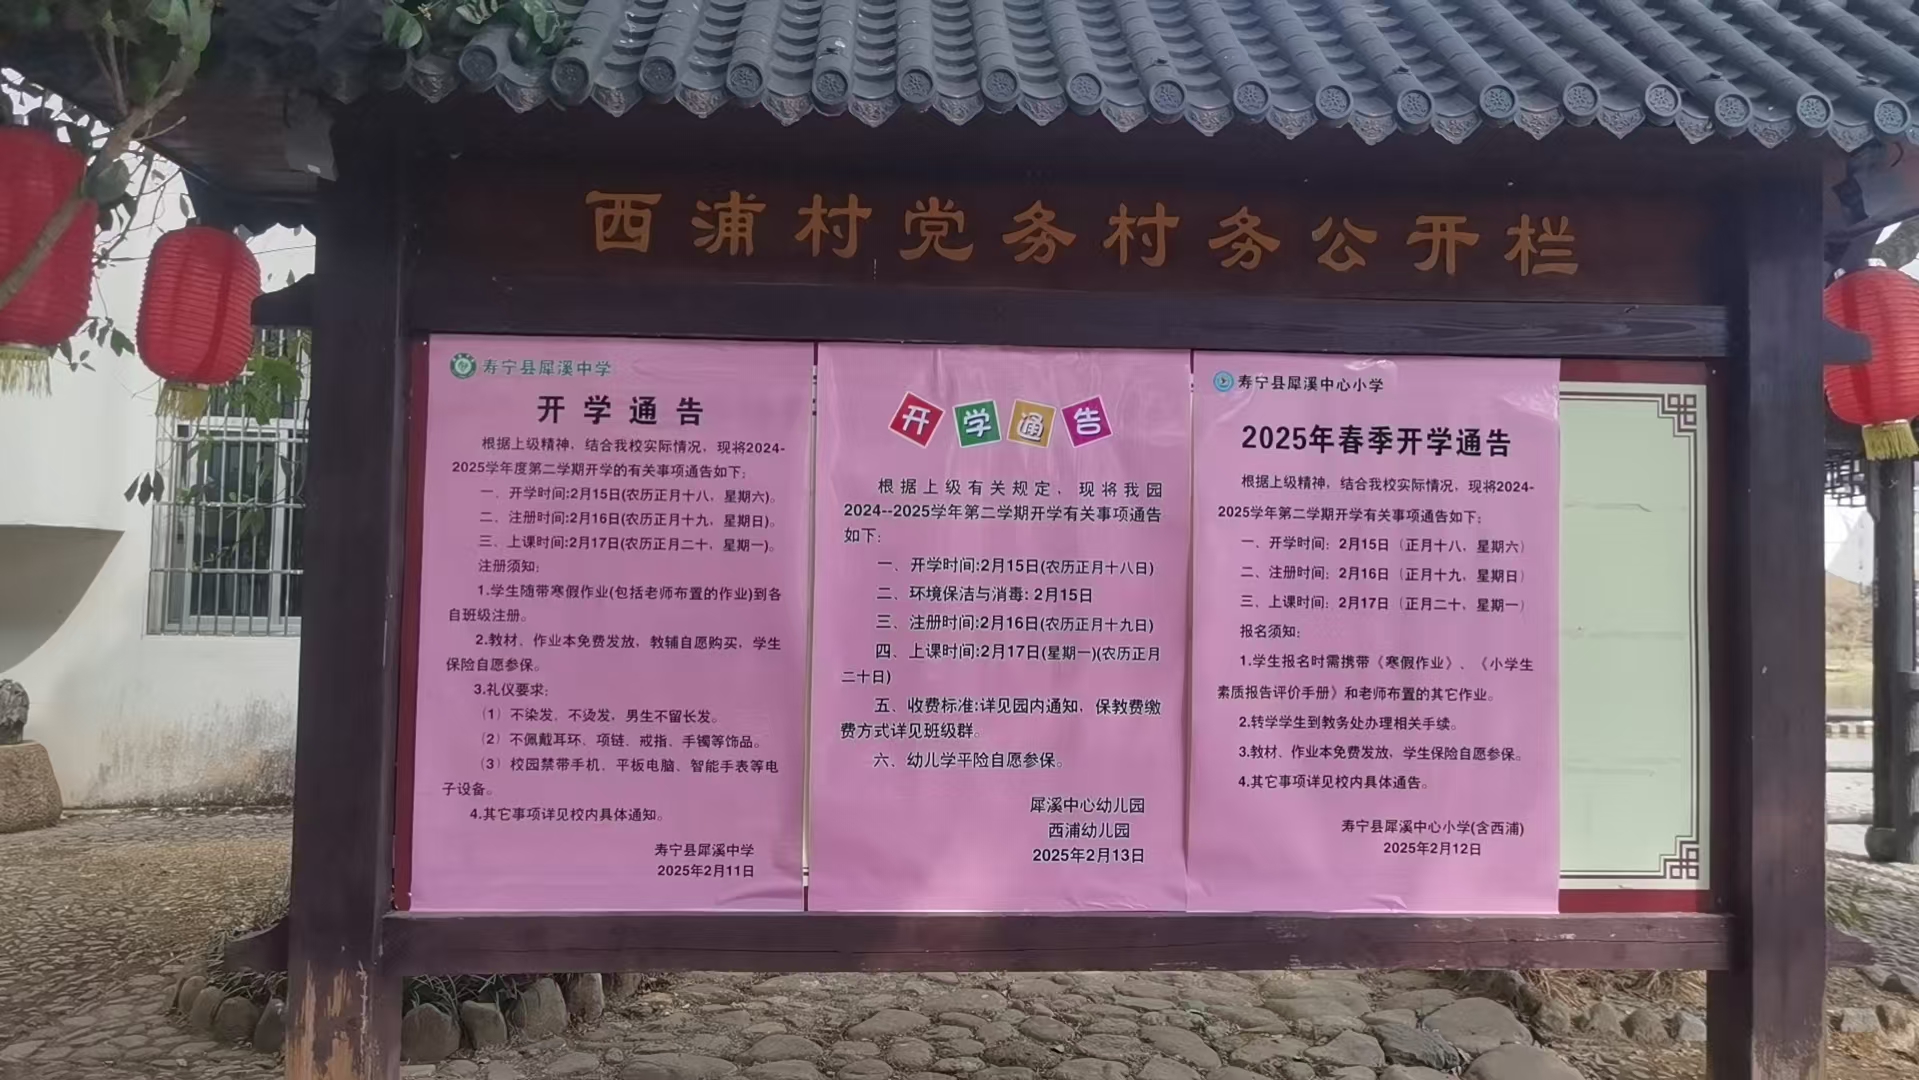 西浦村党务村务公开栏
寿宁县犀溪中学
开学通告
根据上级精神，结合我校实际情况，现将2024-
2025学年度第二学期开学的有关事项通告如下：
一、开学时间:2月15日(农历正月十八，星期六)。
二、注册时间:2月16日(农历正月十九，星期日)。
三、上课时间:2月17日(农历正月二十，星期一)。
注册须知：
1.学生随带寒假作业(包括老师布置的作业)到各
自班级注册。
2.教材、作业本免费发放，教辅自愿购买，学生
保险自愿参保。
3.礼仪要求：
（1）不染发、不烫发，男生不留长发。
（2）不佩戴耳环、项链、戒指、手镯等饰品。
（3）校园禁带手机、平板电脑、智能手表等电
子设备。
4.其它事项详见校内具体通知。
寿宁县犀溪中学
2025年2月11日
开学通告
根据上级有关规定，现将我园
2024--2025学年第二学期开学有关事项通告
如下：
一、开学时间:2月15日(农历正月十八日)
二、环境保洁与消毒: 2月15日
三、注册时间:2月16日(农历正月十九日)
四、上课时间:2月17日(星期一)(农历正月
二十日)
五、收费标准:详见园内通知，保教费缴
费方式详见班级群。
六、幼儿学平险自愿参保。
犀溪中心幼儿园
西浦幼儿园
2025年2月13日
寿宁县犀溪中心小学
2025年春季开学通告
根据上级精神，结合我校实际情况，现将2024-
2025学年第二学期开学有关事项通告如下：
一、开学时间：2月15日（正月十八，星期六）
二、注册时间：2月16日（正月十九，星期日）
三、上课时间：2月17日（正月二十，星期一）
报名须知：
1.学生报名时需携带《寒假作业》、《小学生
素质报告评价手册》和老师布置的其它作业。
2.转学学生到教务处办理相关手续。
3.教材、作业本免费发放，学生保险自愿参保。
4.其它事项详见校内具体通告。
寿宁县犀溪中心小学(含西浦)
2025年2月12日